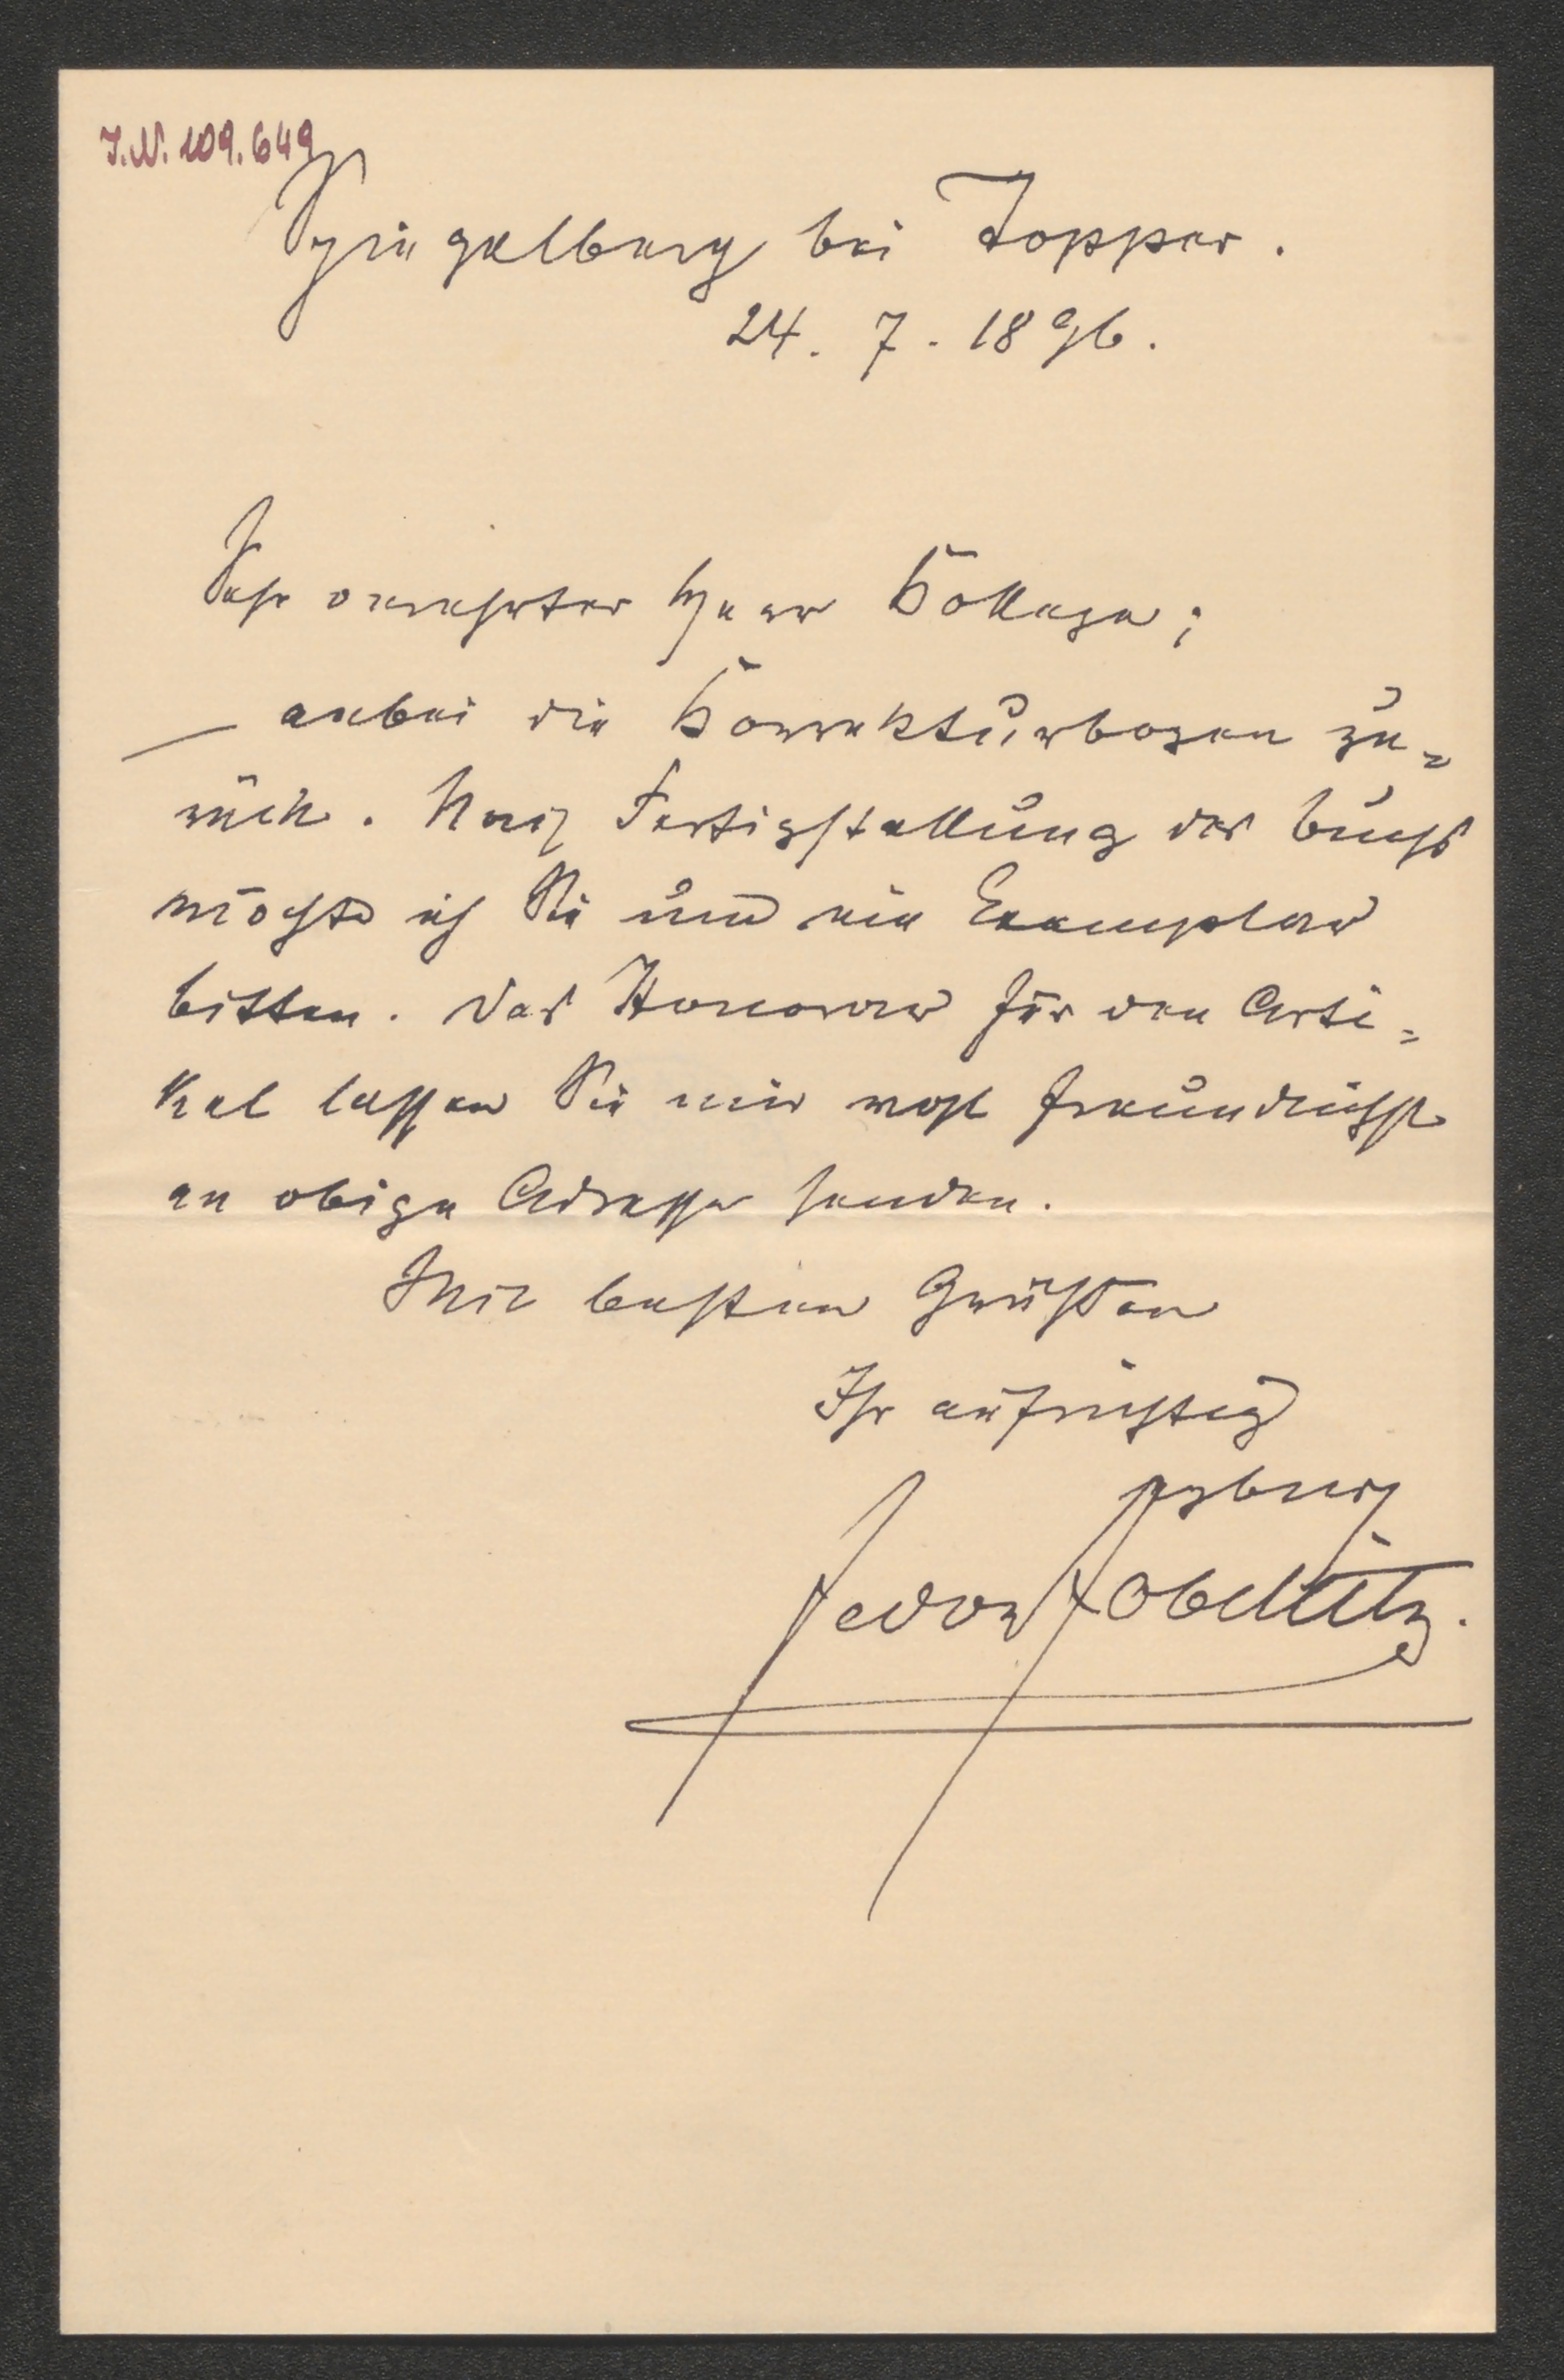 I.N. 109.649
Spiegelberg bei Topper.
24. 7. 1896.
Sehr verehrter Herr Kollege;
— anbei die Korrekturbogen zu=
rück. Nach Fertigstellung des Buchs
möchte ich Sie um ein Exemplar
bitten. Das Honorar für den Arti=
kel lassen Sie mir wohl freundlichst
an obige Adresse senden.
Mit besten Grüßen
Ihr aufrichtig
ergebener
Fedor von Zobeltitz.